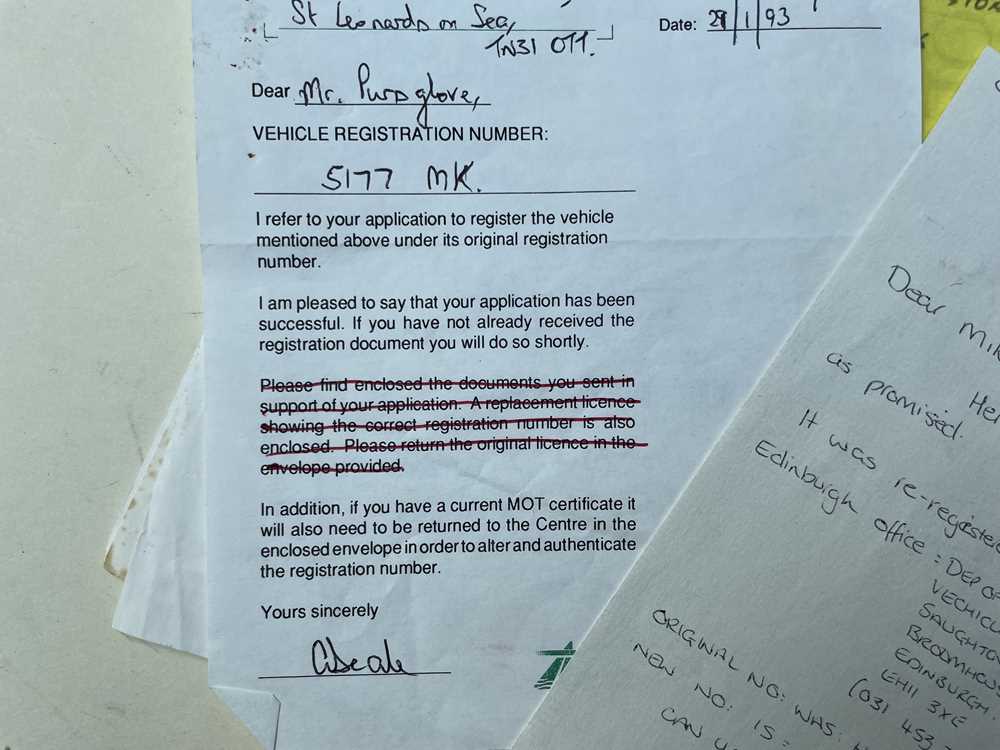 St Leonards on Sea,
TN31 OTT.
Date: 29/1/93
Dear Mr. Pursglove,
VEHICLE REGISTRATION NUMBER:
5177 MK.
I refer to your application to register the vehicle
mentioned above under its original registration
number.
I am pleased to say that your application has been
successful. If you have not already received the
registration document you will do so shortly.
Please find enclosed the documents you sent in
support of your application. A replacement licence
showing the correct registration number is also
enclosed. Please return the original licence in the
envelope provided.
In addition, if you have a current MOT certificate it
will also need to be returned to the Centre in the
enclosed envelope in order to alter and authenticate
the registration number.
Yours sincerely
Dear Mik
He
as promised.
It was re-registe
Edinburgh office: DEP OF
VECHICL
SAUGHTO
BROOMHOUS
EDINBURGH.
EH11 3XE
(031 453
ORIGINAL NO: WAS:
NEW NO: IS:
CAN